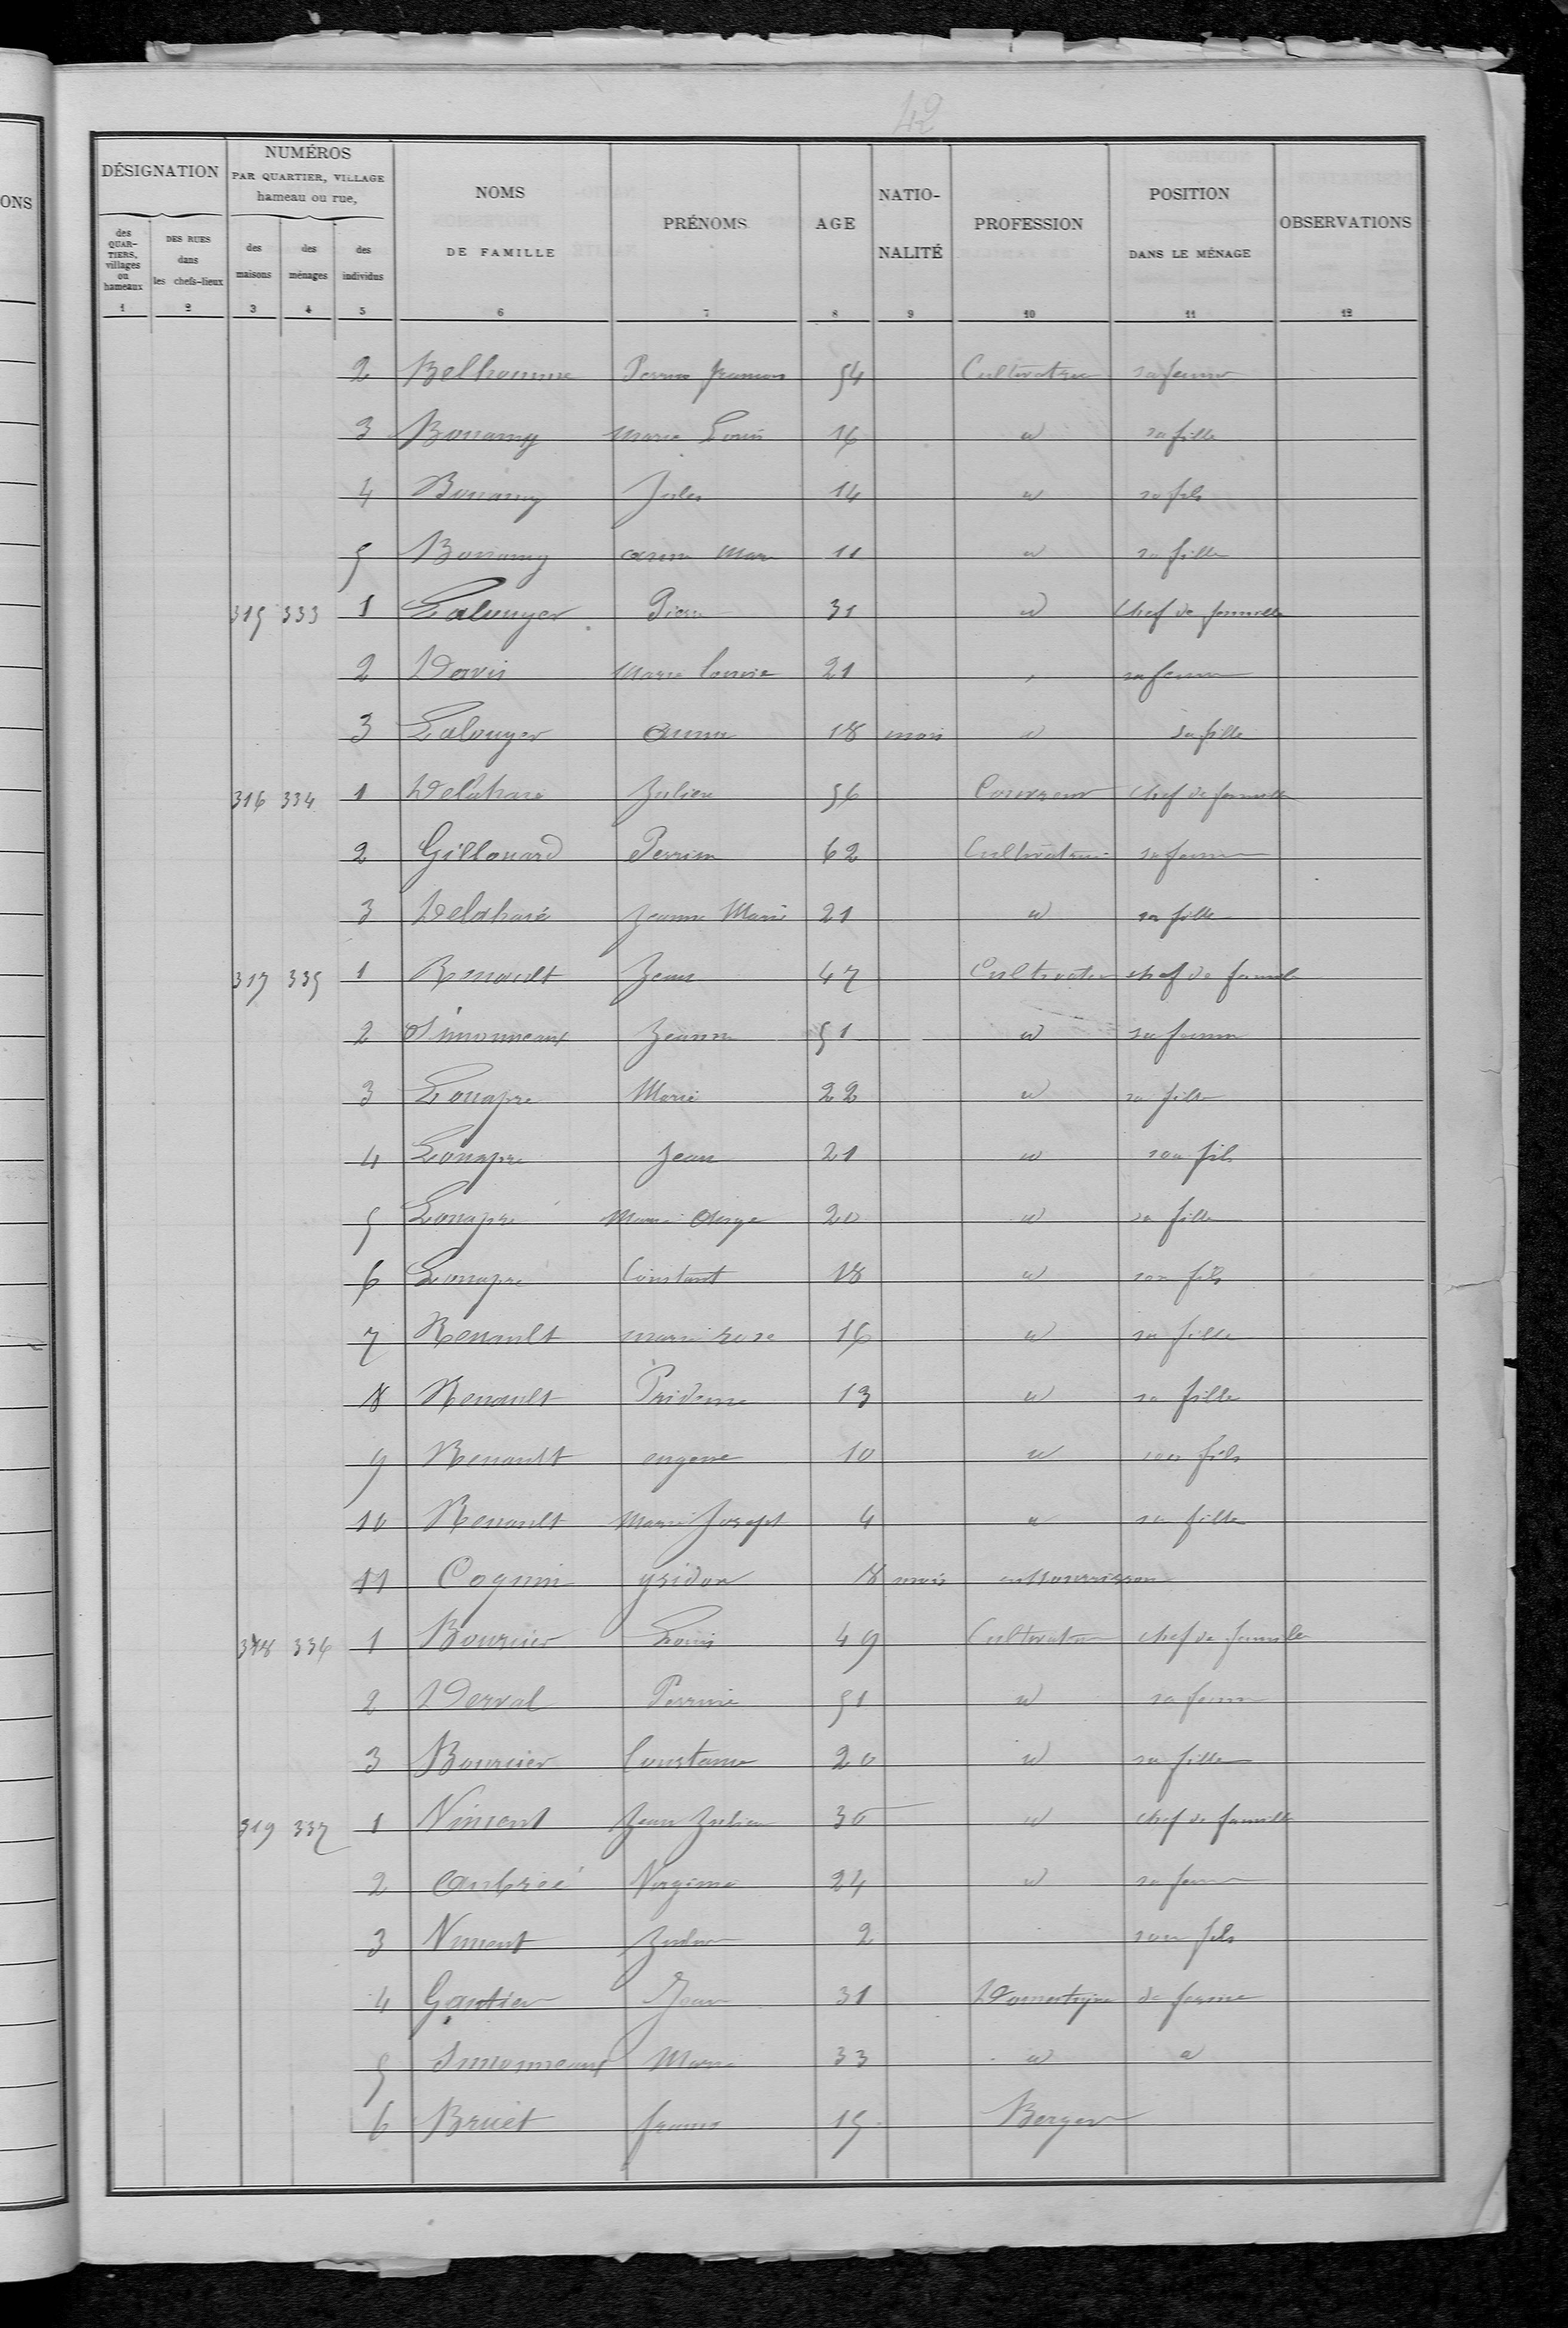 42
ONS
DÉSIGNATION
NUMÉROS
PAR QUARTIER, VILLAGE
hameau ou rue,
NOMS
DE FAMILLE
PRÉNOMS
AGE
NATIO-
NALITÉ
PROFESSION
POSITION
DANS LE MÉNAGE
OBSERVATIONS
des
QUAR-
TIERS,
villages
ou
hameaux
DES RUES
dans
les chefs-lieux
des
maisons
des
ménages
des
individus
1 2 3 4 5 6 7 8 9 10 11 12
2 Belhomme 54 sa femme
3 Bonamy Marie Louis 16 id sa fille
4 Bonamy Jules 14 id so fils
5 Bonamy anna Marie 11 id sa fille
315 333 1 Lalouyer Pierre 31 id Chef de famille
2 Davis Marie Louise 21 sa femme
3 Lalouyer anna 18 mois id sa fille
316 334 1 Delahaie Julien 56 Couvreur chef de famille
2 Gillouard Perrine 62 Cultivatrice sa femme
3 Delahaie Jeanne Marie 21 id sa fille
317 335 1 Renault Jean 47 Cultivateur chef de famille
2 Simonneaux Jeanne 51 id sa femme
3 Louapre Marie 22 id sa fille
4 Louapre Jean 21 id son fils
5 Louapre Marie Ange 20 id sa fille
6 Louapre Constant 18 id son fils
7 Renault marie rose 16 id sa fille
8 Renault 13 id sa fille
9 Renault eugene 10 id son fils
10 Renault Marie Joseph 4 id sa fille
11 Coquin 18 mois en Nourrisson
318 336 1 Bourcier Louis 49 Cultivateur chef de famille
2 Derval Perrine 51 id sa femme
3 Bourcier Constance 20 id sa fille
319 337 1 Vincent Jean Julien 30 id chef de famille
2 Aubrée Virginie 24 id sa femme
3 Vincent 2 son fils
4 Gautier Jean 31 Domestique de ferme
5 Simonneaux Marie 33 id id
6 Bruet 15 Berger